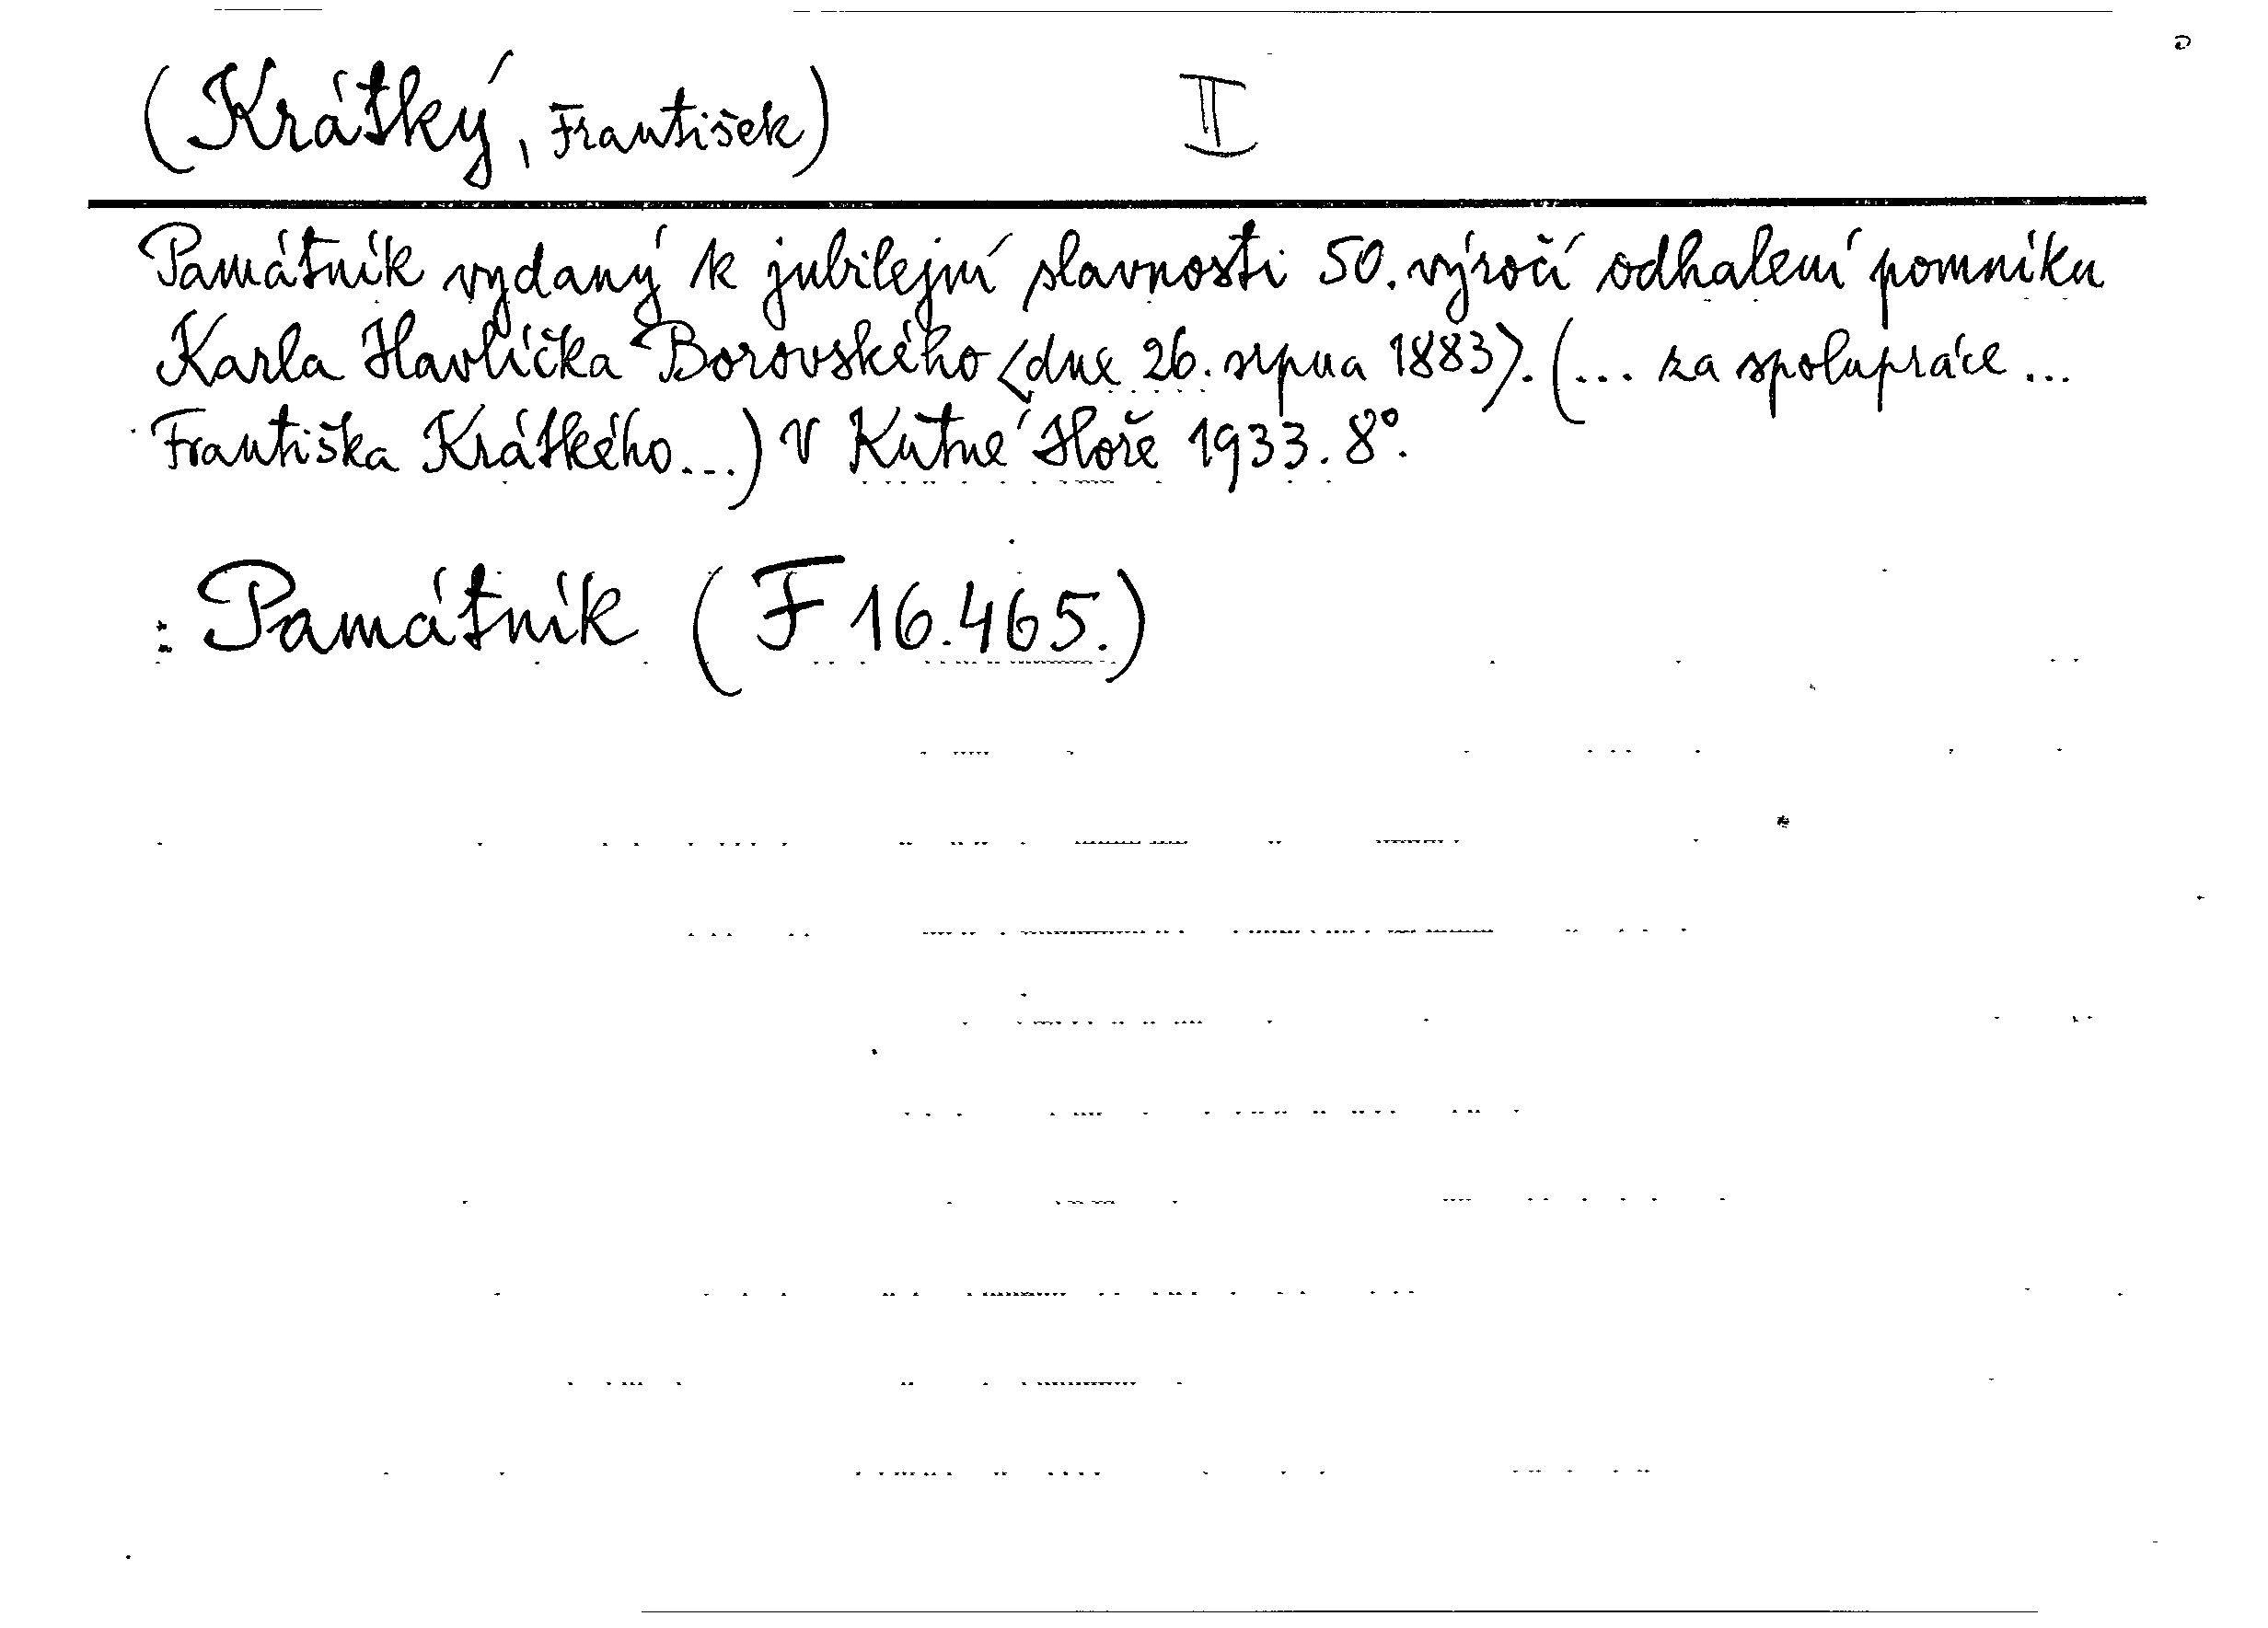 (Krátký, František) II
Památník vydaný k jubilejní slavnosti 50. výročí odhalení pomníku
Karla Havlíčka Borovského <dne 26. srpna 1883>. (... za spolupráce ...
Františka Krátkého...) V Kutné Hoře 1933. 8°.
: Památník (F 16.465.)